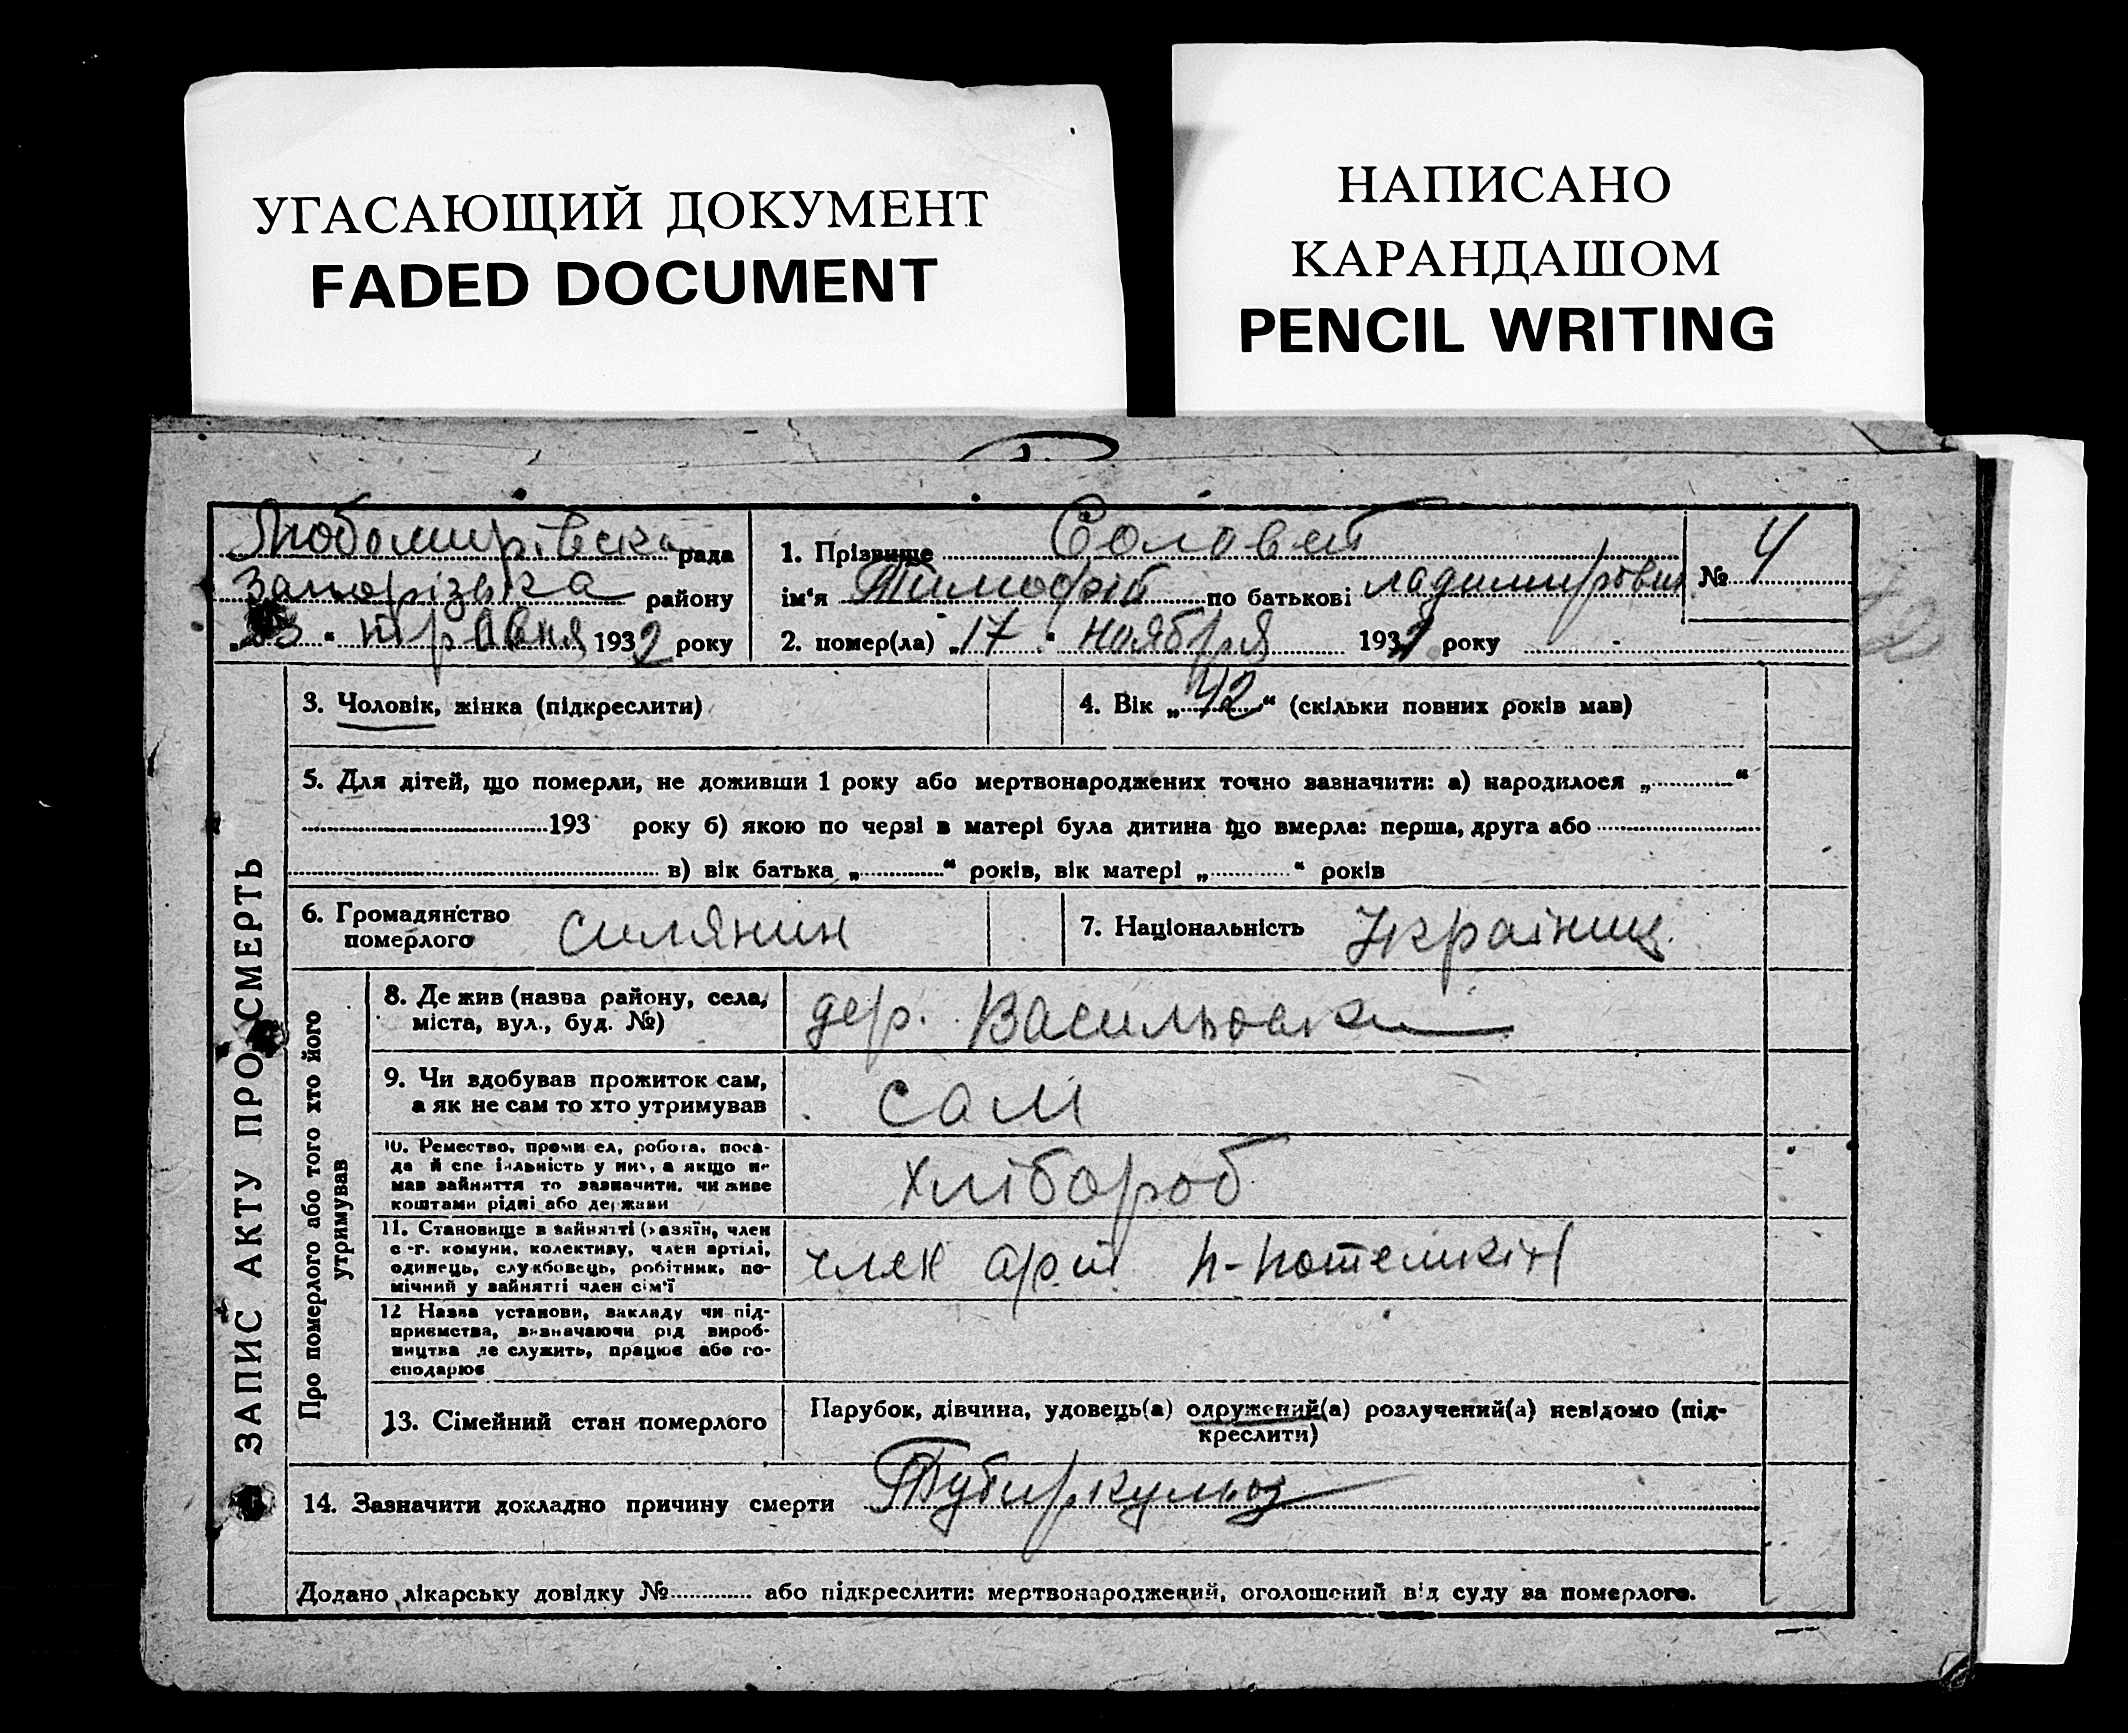 УГАСАЮЩИЙ ДОКУМЕНТ
FADED DOCUMENT
НАПИСАНО
КАРАНДАШОМ
PENCIL WRITING
Любомирівска рада
Запорізька району
"23" травня 1932 року
1. Прізвище Соловей
ім'я Тимофій по батькові ладимирович
№ 4
2. помер(ла) "17" ноября 193 року
ЗАПИС АКТУ ПРО СМЕРТЬ
3. Чоловік, жінка (підкреслити)
4. Вік „42“ (скільки повних років мав)
5. Для дітей, що померли, не доживши 1 року або мертвонароджених точно зазначити: а) народилося „ “
193 року б) якою по черзі в матері була дитина що вмерла: перша, друга або
в) вік батька „ “ років, вік матері „ “ років
6. Громадянство
померлого
силянин
7. Національність Українец
Про померлого або того хто його
утримував
8. Де жив (назва району, села,
міста, вул., буд. №)
дер. Васильовка
9. Чи здобував прожиток сам,
а як не сам то хто утримував
сам
10. Ремество, промисел, робота, поса-
да й спеціяльність у них, а якщо не
мав зайняття то зазначити, чи живе
коштами рідні або держави
хлібороб
11. Становище в зайнятті (хазяїн, член
с.-г. комуни, колективу, член артілі,
одинець, службовець, робітник, по-
мічний у зайнятті член сім'ї
член арт п-потемкін
12 Назва установи, закладу чи під-
приємства, визначаючи рід вироб-
ництва де служить, працює або го-
сподарює
13. Сімейний стан померлого
Парубок, дівчина, удовець(а) одружений(а) розлучений(а) невідомо (під-
креслити)
14. Зазначити докладно причину смерти Тубиркульоз
Додано лікарську довідку № або підкреслити: мертвонароджений, оголошений від суду за померлого.